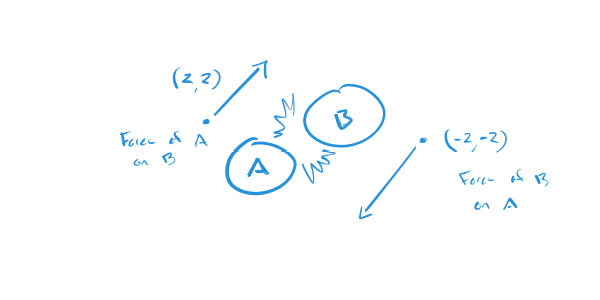 (2,2)
Force of A
on B
A
B
(-2,-2)
Force of B
on A